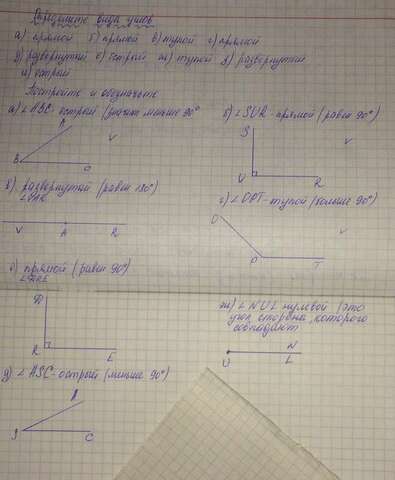 Определите вида углов
а) прямой б) прямой в) тупой г) прямой
д) развернутый е) острый ж) тупой з) развернутый
и) острый
Постройте и обозначьте
а) ∠ABC - острый (значит меньше 90°
б) ∠SUR - прямой (равен 90°)
A
B
C
V
S
U
R
V
в) развернутый (равен 180°)
∠VAR
V A R
г) ∠DPT - тупой (больше 90°)
D
P
T
V
е) прямой (равен 90°)
∠ARE
A
R
E
ж) ∠NUL нулевой (это
угол стороны, которого
совпадают
N
U
L
д) ∠ASC - острый (меньше 90°)
A
S
C